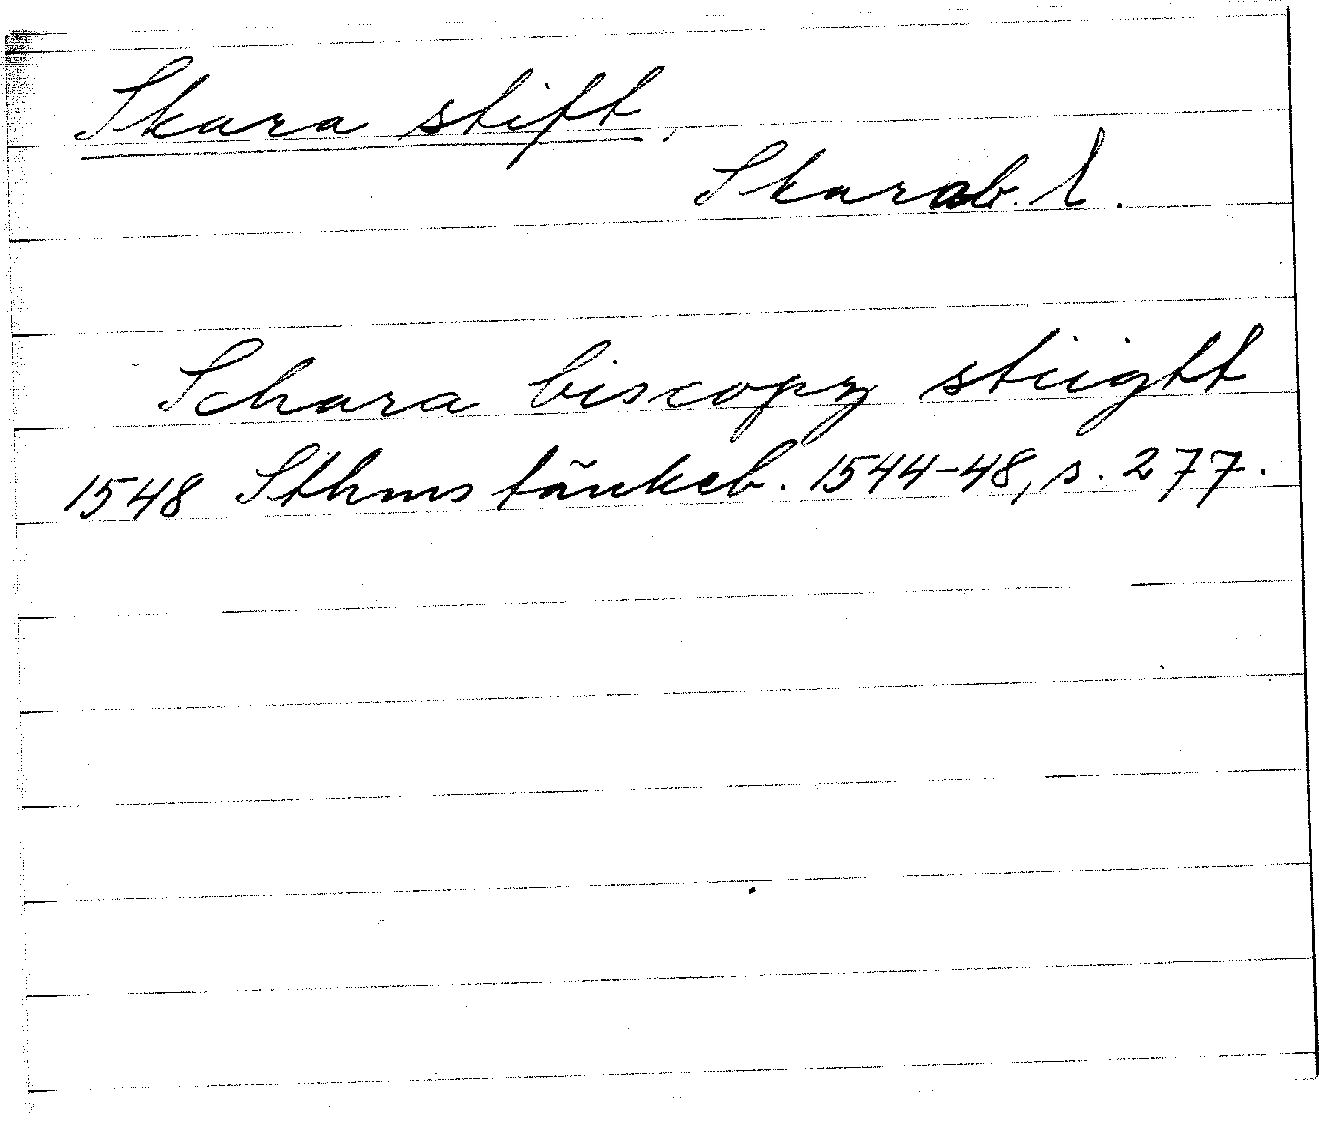 Skara stift,
Skarab. l.
Schara biscopz stiigtt
1548 Sthms tänkeb. 1544-48, s. 277.